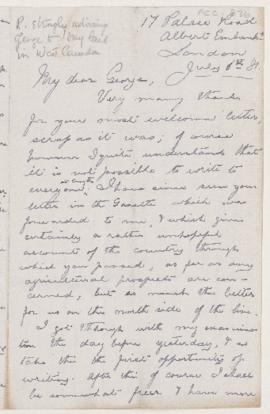 R. strongly advising
George to buy land
in West Canada
17 Palace Road
Albert Embankt
London
July 6th
My dear George,
Very many thanks
for your most welcome letter,
scrap as it was; of course
however I quite understand that
it is not possible to write to
everyone at length; I have since seen your
letter in the Gazette which was
forwarded to me, & which gives
certainly a rather unhopeful
account of the country through
which you passed, as far as any
agricultural prospects are con-
cerned, but so much the better
for us on this north side of the line.
I got through with my examina-
tion the day before yesterday, & so
take this the first opportunity of
writing. After this of course I shall
be somewhat freer. I have more